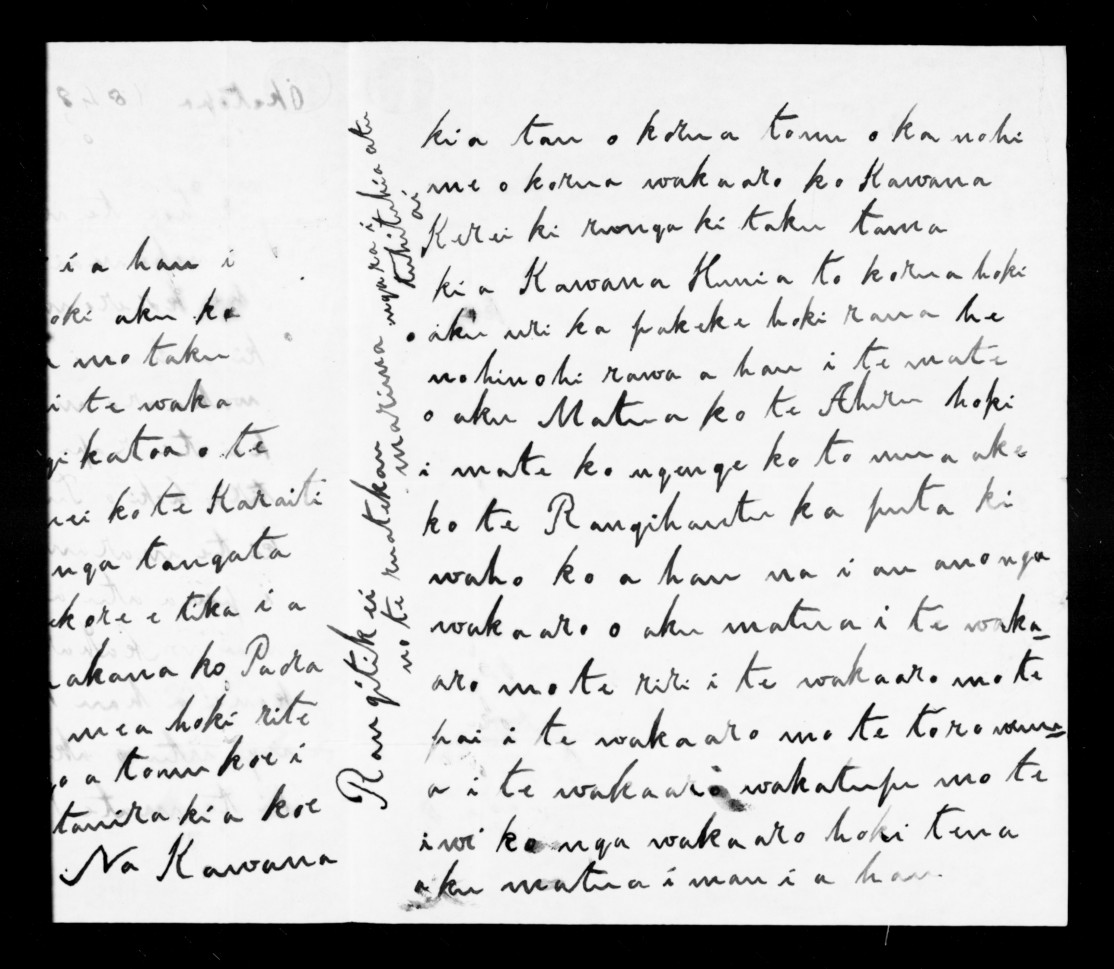 i a hau i
oki aku ko
i mo taku
i te waka
gi katoa o te
nei ko te Karaiti
nga tangata
ekore e tika i a
akana ko Paora
mea hoki rite
a tomu koe i
tauira ki a koe
Na Kawana
Rangitikei
no te matekau marima nga ra i tuhituhia atu
tuhi ai
kia tau o korua tomu o kanohi
me o korua wakaaro ko Kawana
Kerei ki runga ki taku tama
ki a Kawana Hunia to korua hoki
o aku uri ka pakeke hoki raua he
nohinohi rawa a hau i te mate
o aku Matua ko te Ahuru hoki
i mate ko ngenge ko to mua ake
ko te Rangihautu ka puta ki
waho ko a hau na i au ano nga
wakaaro o aku matua i te waka-
aro mo te riri i te wakaaro mo te
pai i te wakaaro mo te torowenu=
a i te wakaaro wakatupu mo te
iwi ko nga wakaaro hoki tena
aku matua i mau i a hau.